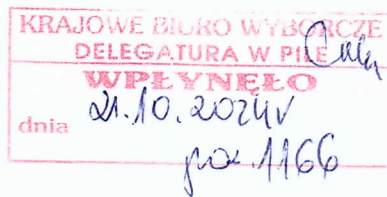 KRAJOWE BIURO WYBORCZE
DELEGATURA W PILE
WPŁYNĘŁO
dnia 21.10.2024r
poz. 1166